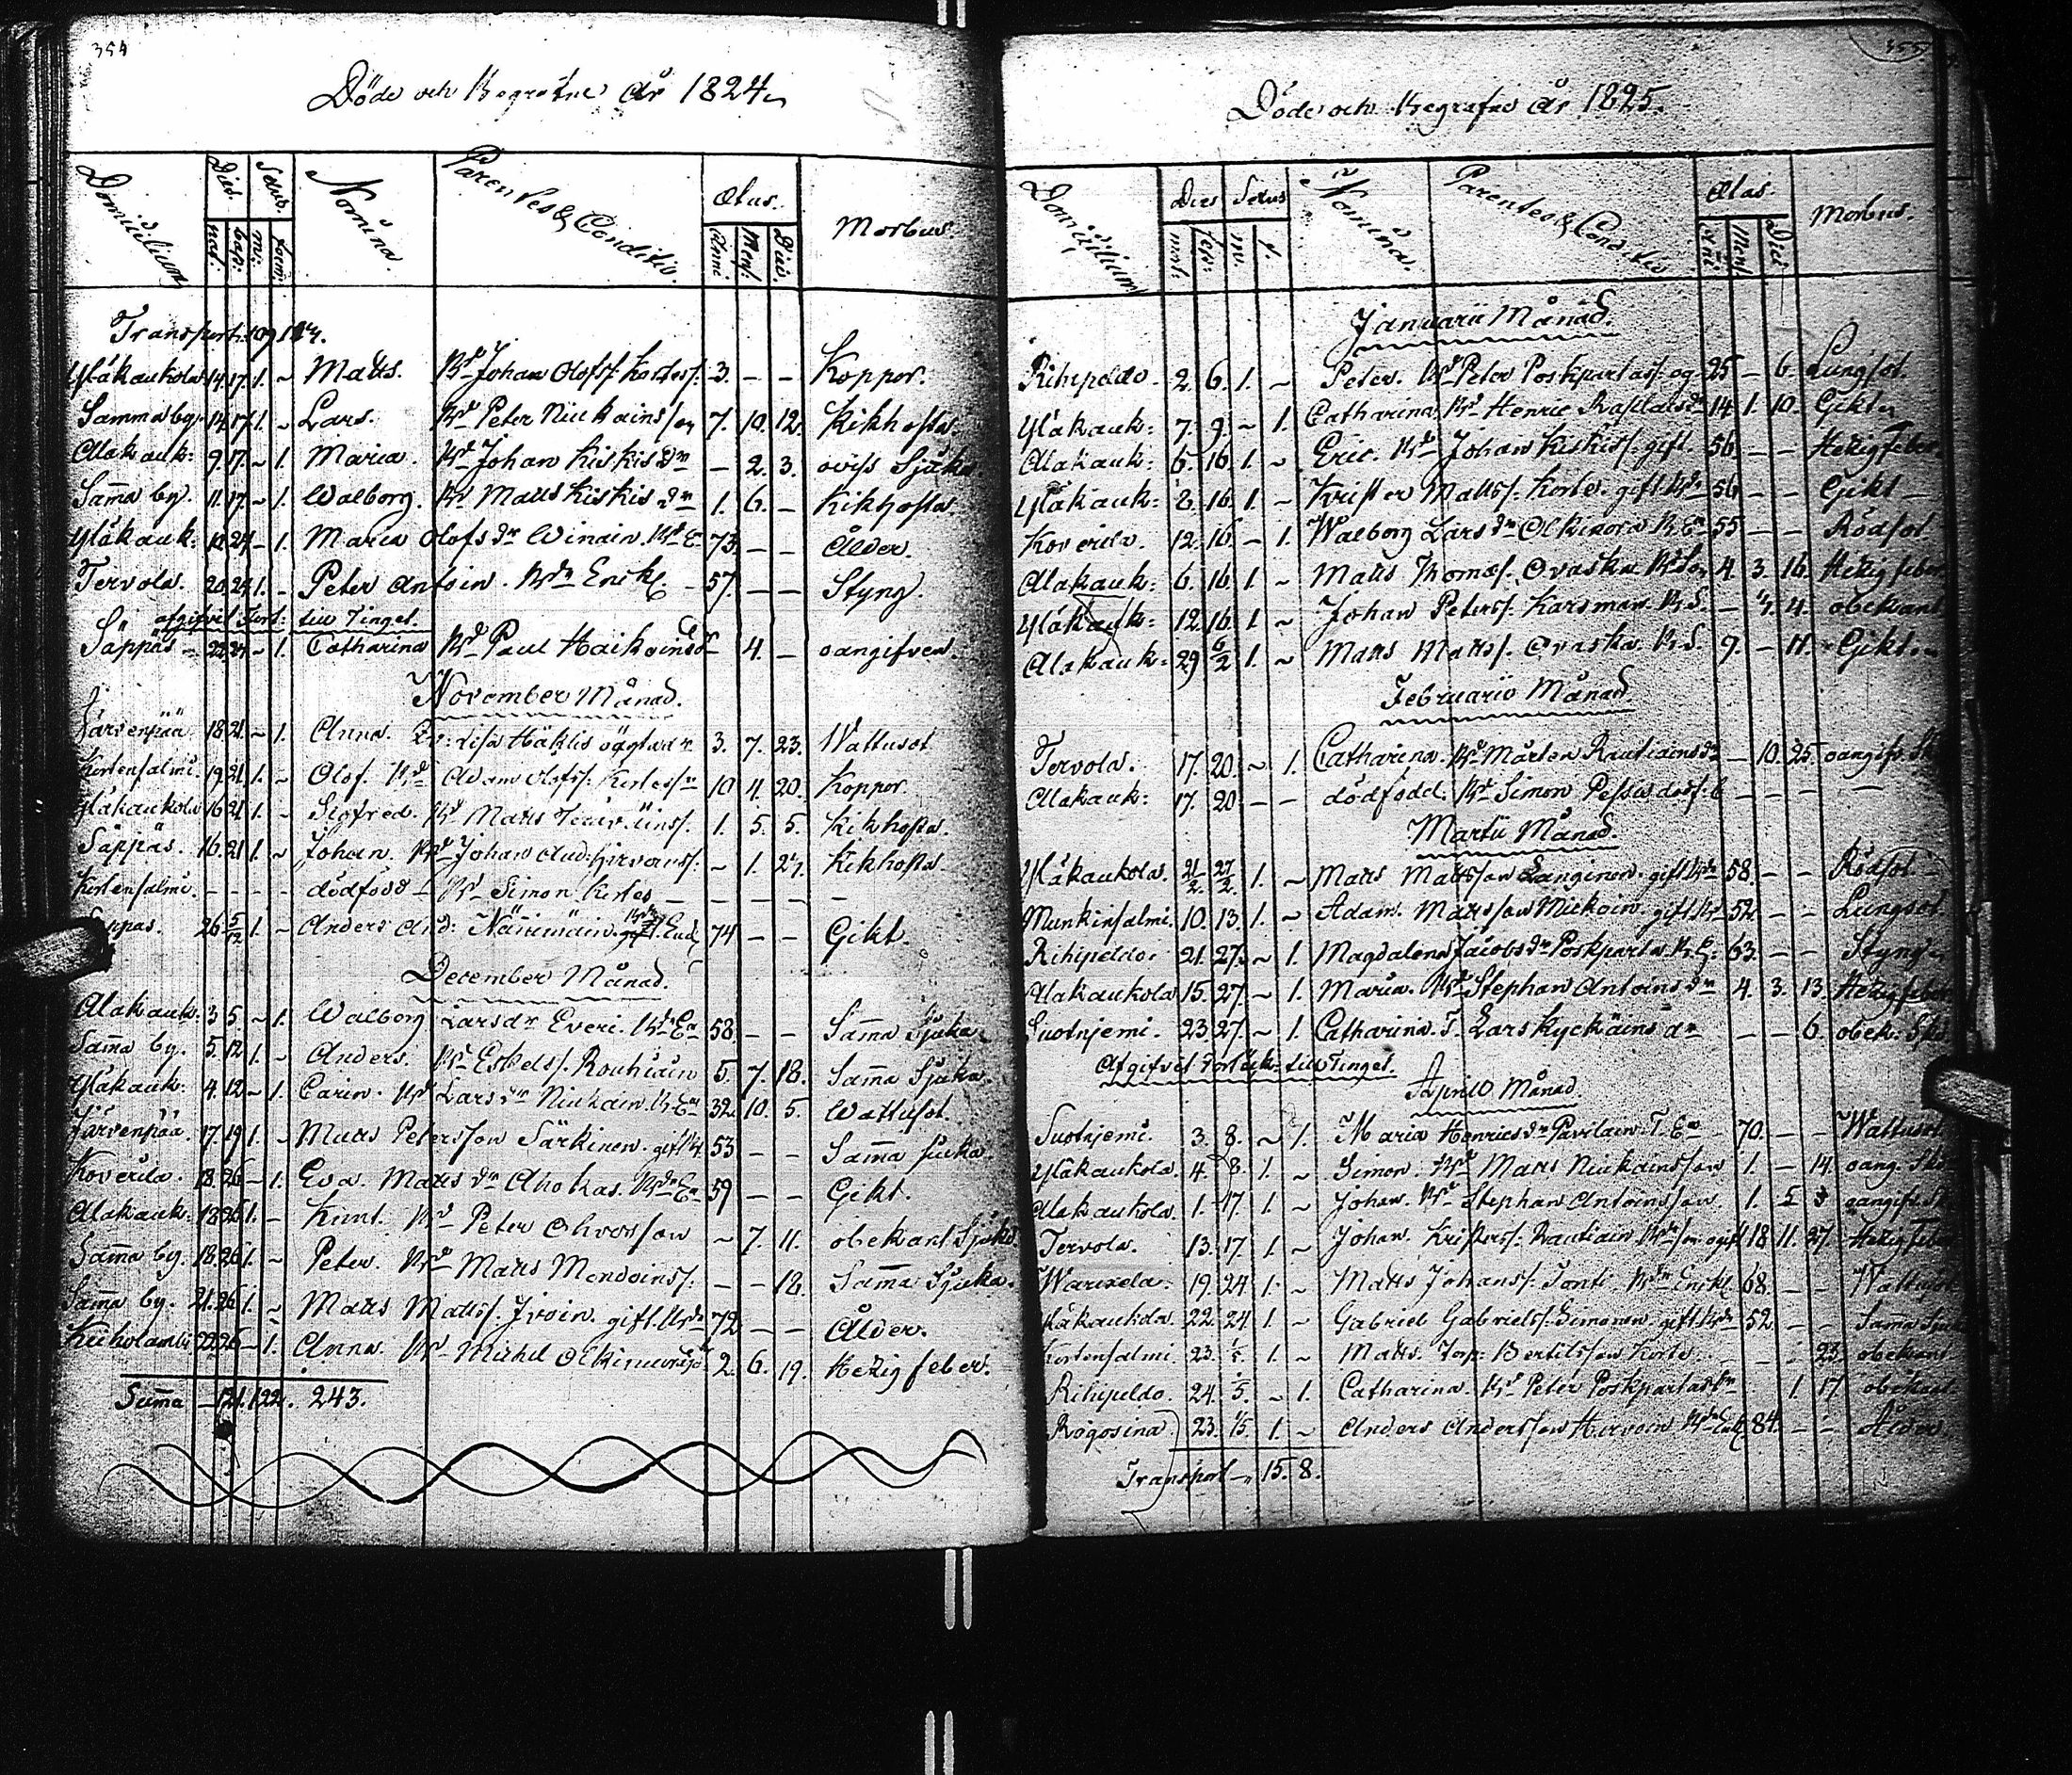 354
Döde och Begrafne år 1824.
Domicilium Dies Sexus Nomina Parentes & Conditio Ætas. Morbus
nat. bap: m. fœm: Anni Mens: Dies.
Transport: 109 114.
Yläkaukola 14. 17. 1. ~ Matts. Bd Johan Olofs: Kortes: 3. — — Koppor.
Samma by. 14. 17. 1. ~ Lars. Bd Peter Niukains son 7. 10. 12. Kikhosta.
Alakauk: 9. 17. ~ 1. Maria. Bd Johan Kiskis dr — 2. 3. oviss Sjuka.
Samma by. 11. 17. ~ 1. Walborg. Bd Matts Kiskis dr 1. 6. — Kikhosta.
Yläkauk: 24. — 1. Maria Olofs dr Winain. Bd E 73. — — Ålder.
Tervola. 20. 24. 1. — Peter Antoin. Bde Enckl. 57. — — Styng.
afgifvit Fört: till Tinget.
Säppäs — 22. 24. ~ 1. Catharina Bd Paul Haikoins dr — 4. — oangifven.
November Månad.
Järvenpää 18. 21. ~ 1. Anna. Lisa Häklis oägta dr 3. 7. 23. Wattusot
Kortensalmi. 19. 21. 1. ~ Olof. Bd Adam Olofs: Kortes sn 10 4. 20. Koppor.
Yläkaukola 16 21 1. ~ Sigfred. Bd Matts 1. 5. 5. Kikhosta.
Säppäs. 16. 21 1. ~ Johan. Bd Johan And: Hirvons: ~ 1. 27. Kikhosta.
Kortensalmi. — — — — dödfödd — Bd Simon Kortes — — — —
Säppäs. 26 5/12 1. — Anders And: Näriinäin. Enckl 74 — — Gikt.
December Månad.
Alakauk. 3. 5. ~ 1. Walborg Larsdr Everi. Bd Ea 58. — — Samma Sjuka
Samma by. 5. 12 1. ~ Anders. Bd Eskels: Rouhiain 5. 7. 18. Samma Sjuka.
Yläkauk: 4. 12 — 1. Carin. Bd Lars dr Niukain. B. Ea 32. 10. 5. Wattusot.
Järvenpää. 17. 19 1. ~ Matts Petersson Särkinen. gift Bd. 53 — — Samma sjuka
Koverila. 18. 26 — 1. Eva. Matts dr Ahokas. Bde Ea 59 — — Gikt.
Alakauk: 18. 26 1. — Knut. Bd Peter Ahvosson ~ 7. 11. obekant Sjuka
Samma by. 18. 26 1. — Peter. Bd Matts Mondoins: — — 18. Samma Sjuka.
Samma by. 21. 26 1. ~ Matts Matts: Ivoin. gift Bde 72 — — Ålder.
Kuikolambi 22. 26 — 1. Anna. Bd Michel Olkinuoras dr 2. 6. 19. Hetzig feber.
Summa — 121. 122. 243.
355
Döde och Begrafne år 1825.
Domicilium Dies Sexus Nomina. Parentes & Conditio Ætas. Morbus.
mort. sep: m. f. Anni Mens: Dies
Januarii Månad.
Rihipeldo. 2. 6. 1. ~ Peter. Bd Peter Poskpartas: og 25 — 6 Lungsot.
Yläkauk: 7. 9. ~ 1. Catharina Bd Henric Raskas dr 14. 1. 10. Gikt
Alakauk: 6. 16 1. ~ Eric. Bd Johan Kiskis: gift. 56 — — Hetzig feber.
Yläkauk: 8. 16. 1. ~ Krister Matts: Korte. gift Bde 56 — — Gikt —
Koverila. 12. 16. — 1. Walborg Lars dr Olkinora B. Ea 55 — — Rödsot
Alakauk: 6. 16 1. ~ Matts Thomas: Ovaska Bd Son 4. 3. 16. Hetzig feber
Yläkauk: 12. 16. 1 ~ Johan Peters: Karsman B. S. — 4. obekant
Alakauk: 29 6/2 1. ~ Matts Matts: Ovaska B. S. 9. — 11. Gikt.
Februarii Månad
Tervola. 17. 20. ~ 1. Catharina. Bd Mårten Rautiains dr — 10. 25. oangifv.
Alakauk: 17. 20 — — dödfödd. Bd Simon Pessas — — — —
Martii Månad.
Yläkaukola. 21/2. 27/2. 1. ~ Matts Mattsson Langinen. gift Bde 58. — — Rödsot
Munkinsalmi. 10. 13. 1. ~ Adam. Mattsson Mickoin. gift Bd 52 — — Lungsot
Rihipeldo. 21. 27. ~ 1. Magdalena Jacobs dr Poskparta B. E: 63. — — Styng
Alakaukola 15. 27. ~ 1. Maria. Bd Stephan Antoins dr 4. 3. 13. Hetzig feber
Suotniemi. 23. 27. ~ 1. Catharina. T. Lars Kyckäins dr — — 6. obek.
Afgifvit Förteckn: till Tinget.
April Månad
Suotniemi. 3. 8. ~ 1. Maria Henrics dr Pavilain T. Ea 70. — — Wattusot
Yläkaukola. 4. 8. 1. ~ Simon. Bd Matts Niukainsson 1. — 14. oang.
Alakaukola. 1. 17. 1. ~ Johan. Bd Stephan Antoinsson. 1. 5 3 oangifv.
Tervola. 13. 17. 1. ~ Johan. Kristers: Rautiain Bd son ogift 18 11. 27. Hetzig Feber
Warixela. 19. 24. 1. Matts Johans: Tonti Bde Enckl 68. — — Wattusot
Yläkaukola. 22. 24 1. ~ Gabriel Gabriels: Simonen. gift Bde 52 — — Samma Sjuka
Kortensalmi. 23. 1/5. 1. ~ Matts. Torp: Bertilsson Korte. — — 23. obekant
Rihipeldo. 24. 1/5 ~ 1. Catharina. Bd Peter Poskpartas dr 1. 17 obekant
Rogosina 23. 1/5. 1. ~ Anders Andersson Hirvoin Bde Enkl 84. — — Ålder
Transport — 15. 8.